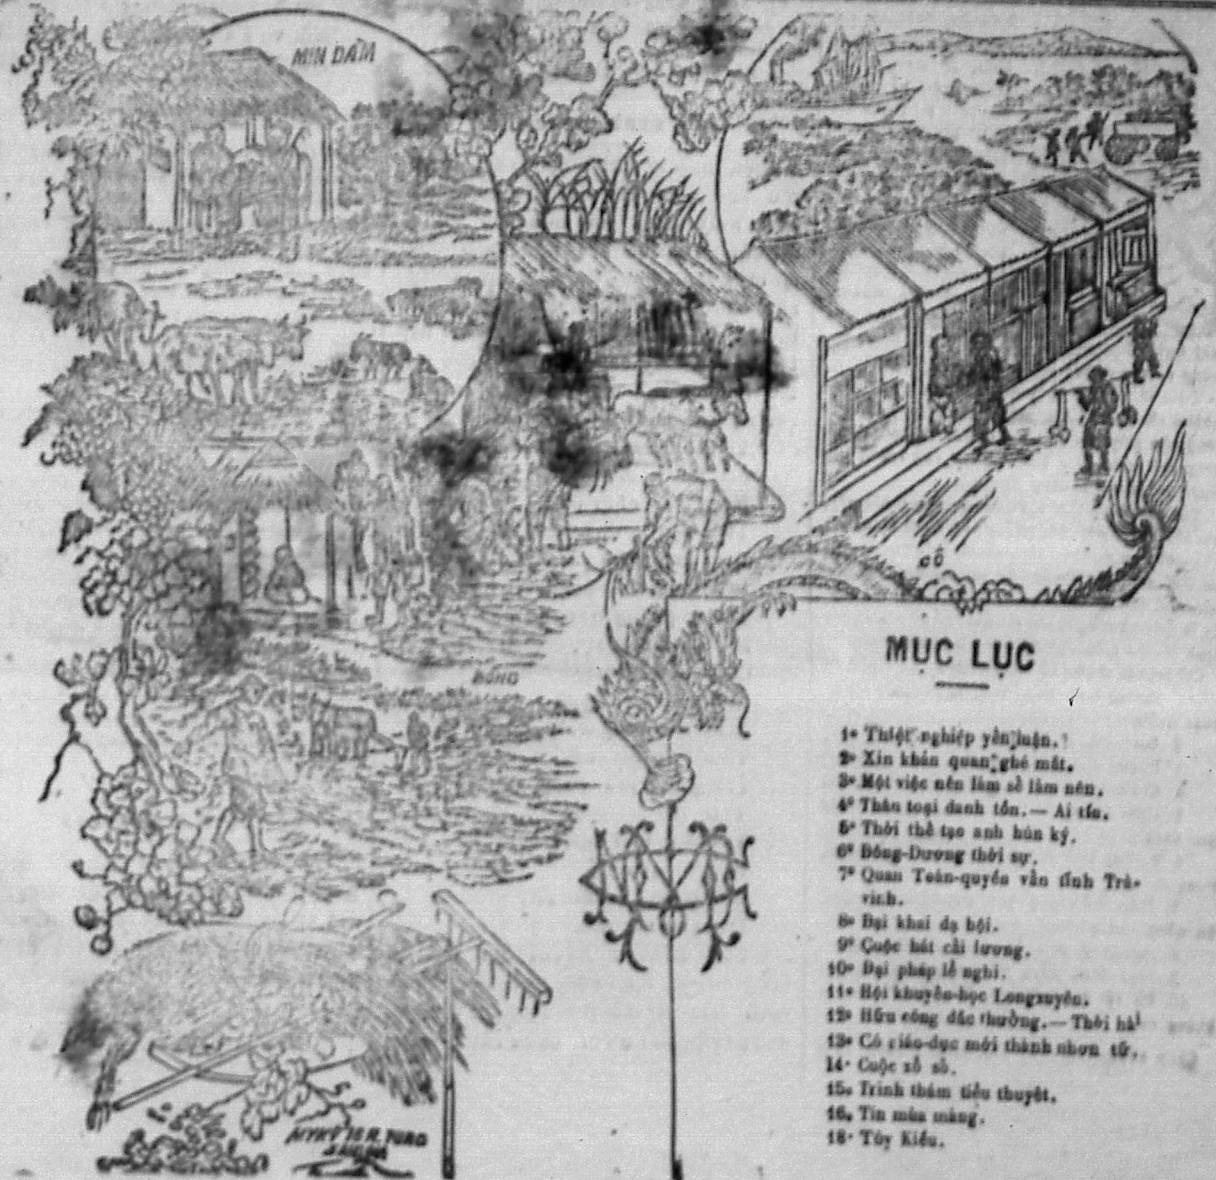 MIN ĐÀM
cổ
ĐỒNG
MỤC LỤC
1º Thiệt nghiệp yến luận.
2º Xin khán quan ghé mắt.
3º Một việc nên làm sẽ làm nên.
4º Thân toại danh tồn.— Ai tín.
5º Thời thế tạo anh hùn ký.
6º Đông-Dương thời sự.
7º Quan Toàn-quyền vãn tỉnh Trà-
vinh.
8º Đại khai dạ hội.
9º Cuộc hát cải lương.
10º Đại pháp lễ nghi.
11º Hội khuyến-học Longxuyên.
12º Hữu công đắc thưởng.— Thời hà
13º Có giáo-dục mới thành nhơn tử.
14º Cuộc xổ số.
15º Trinh thám tiểu thuyết.
16º Tin mùa màng.
18º Túy Kiều.